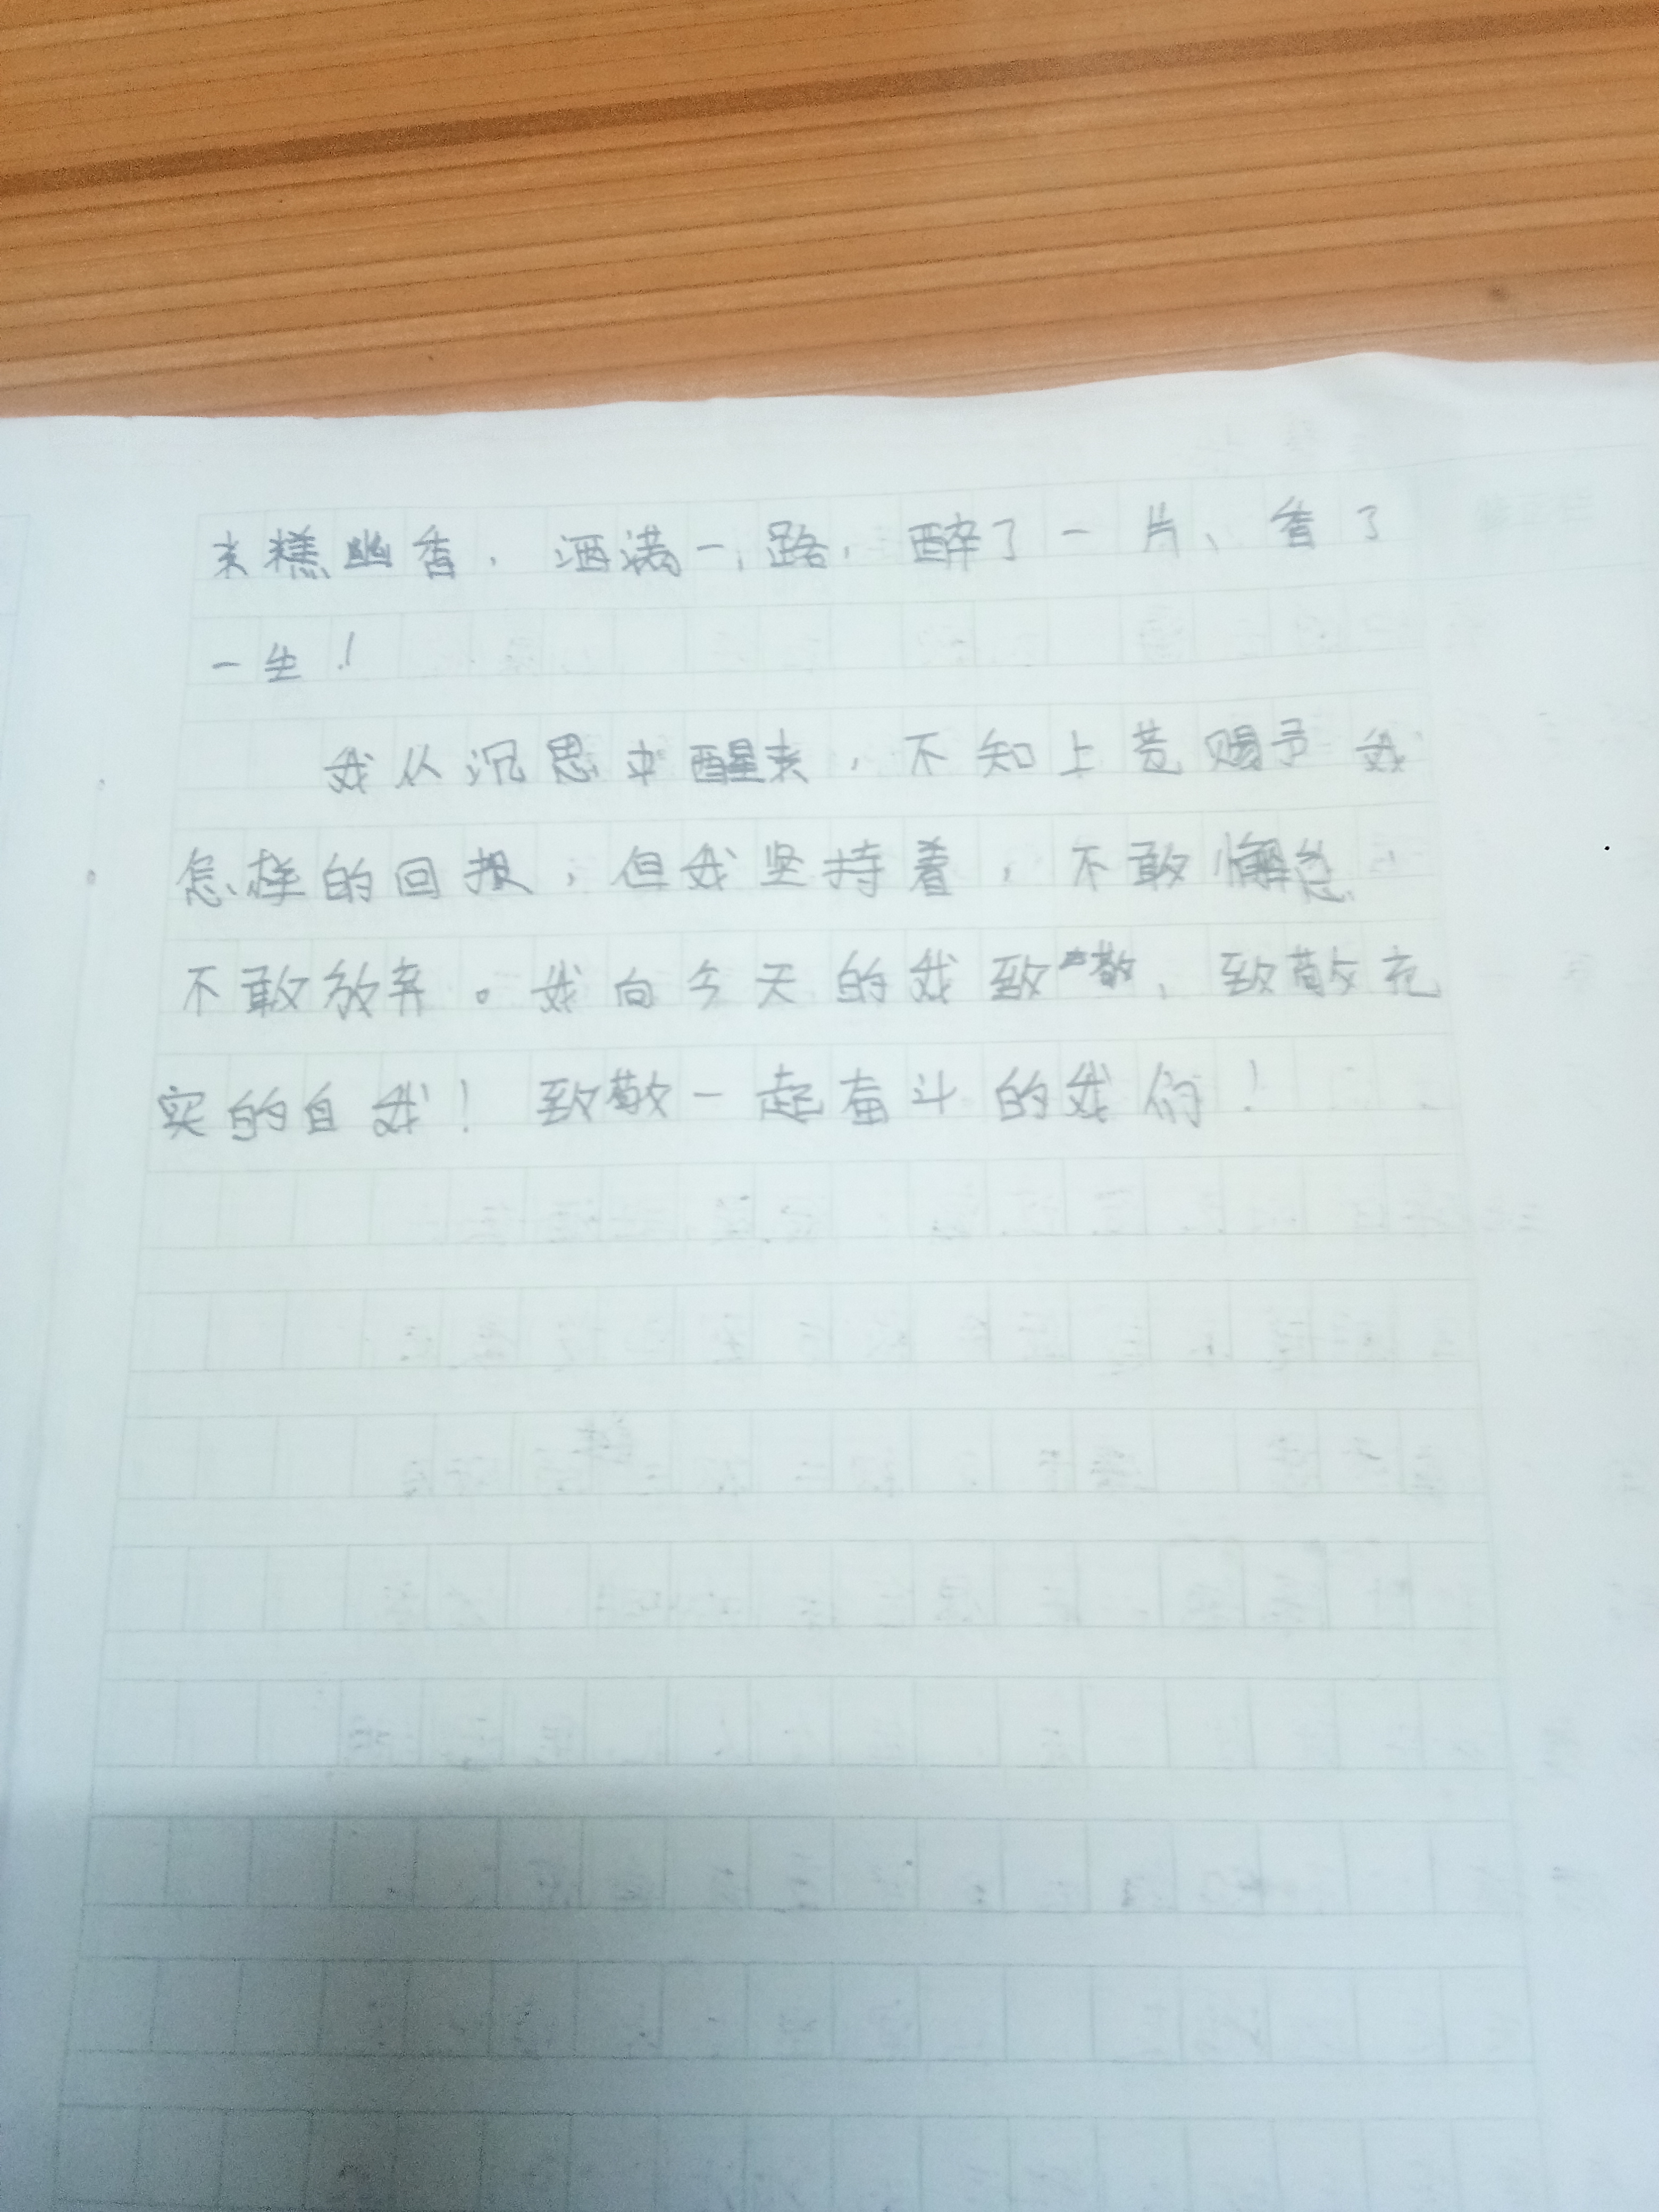 来糕幽香，洒满一路，醉了一片、香了
一生！
我从沉思中醒来，不知上苍赐予我
怎样的回报，但我坚持着，不敢懈怠，
不敢放弃。我向今天的我致敬，致敬充
实的自我！致敬一起奋斗的我们！